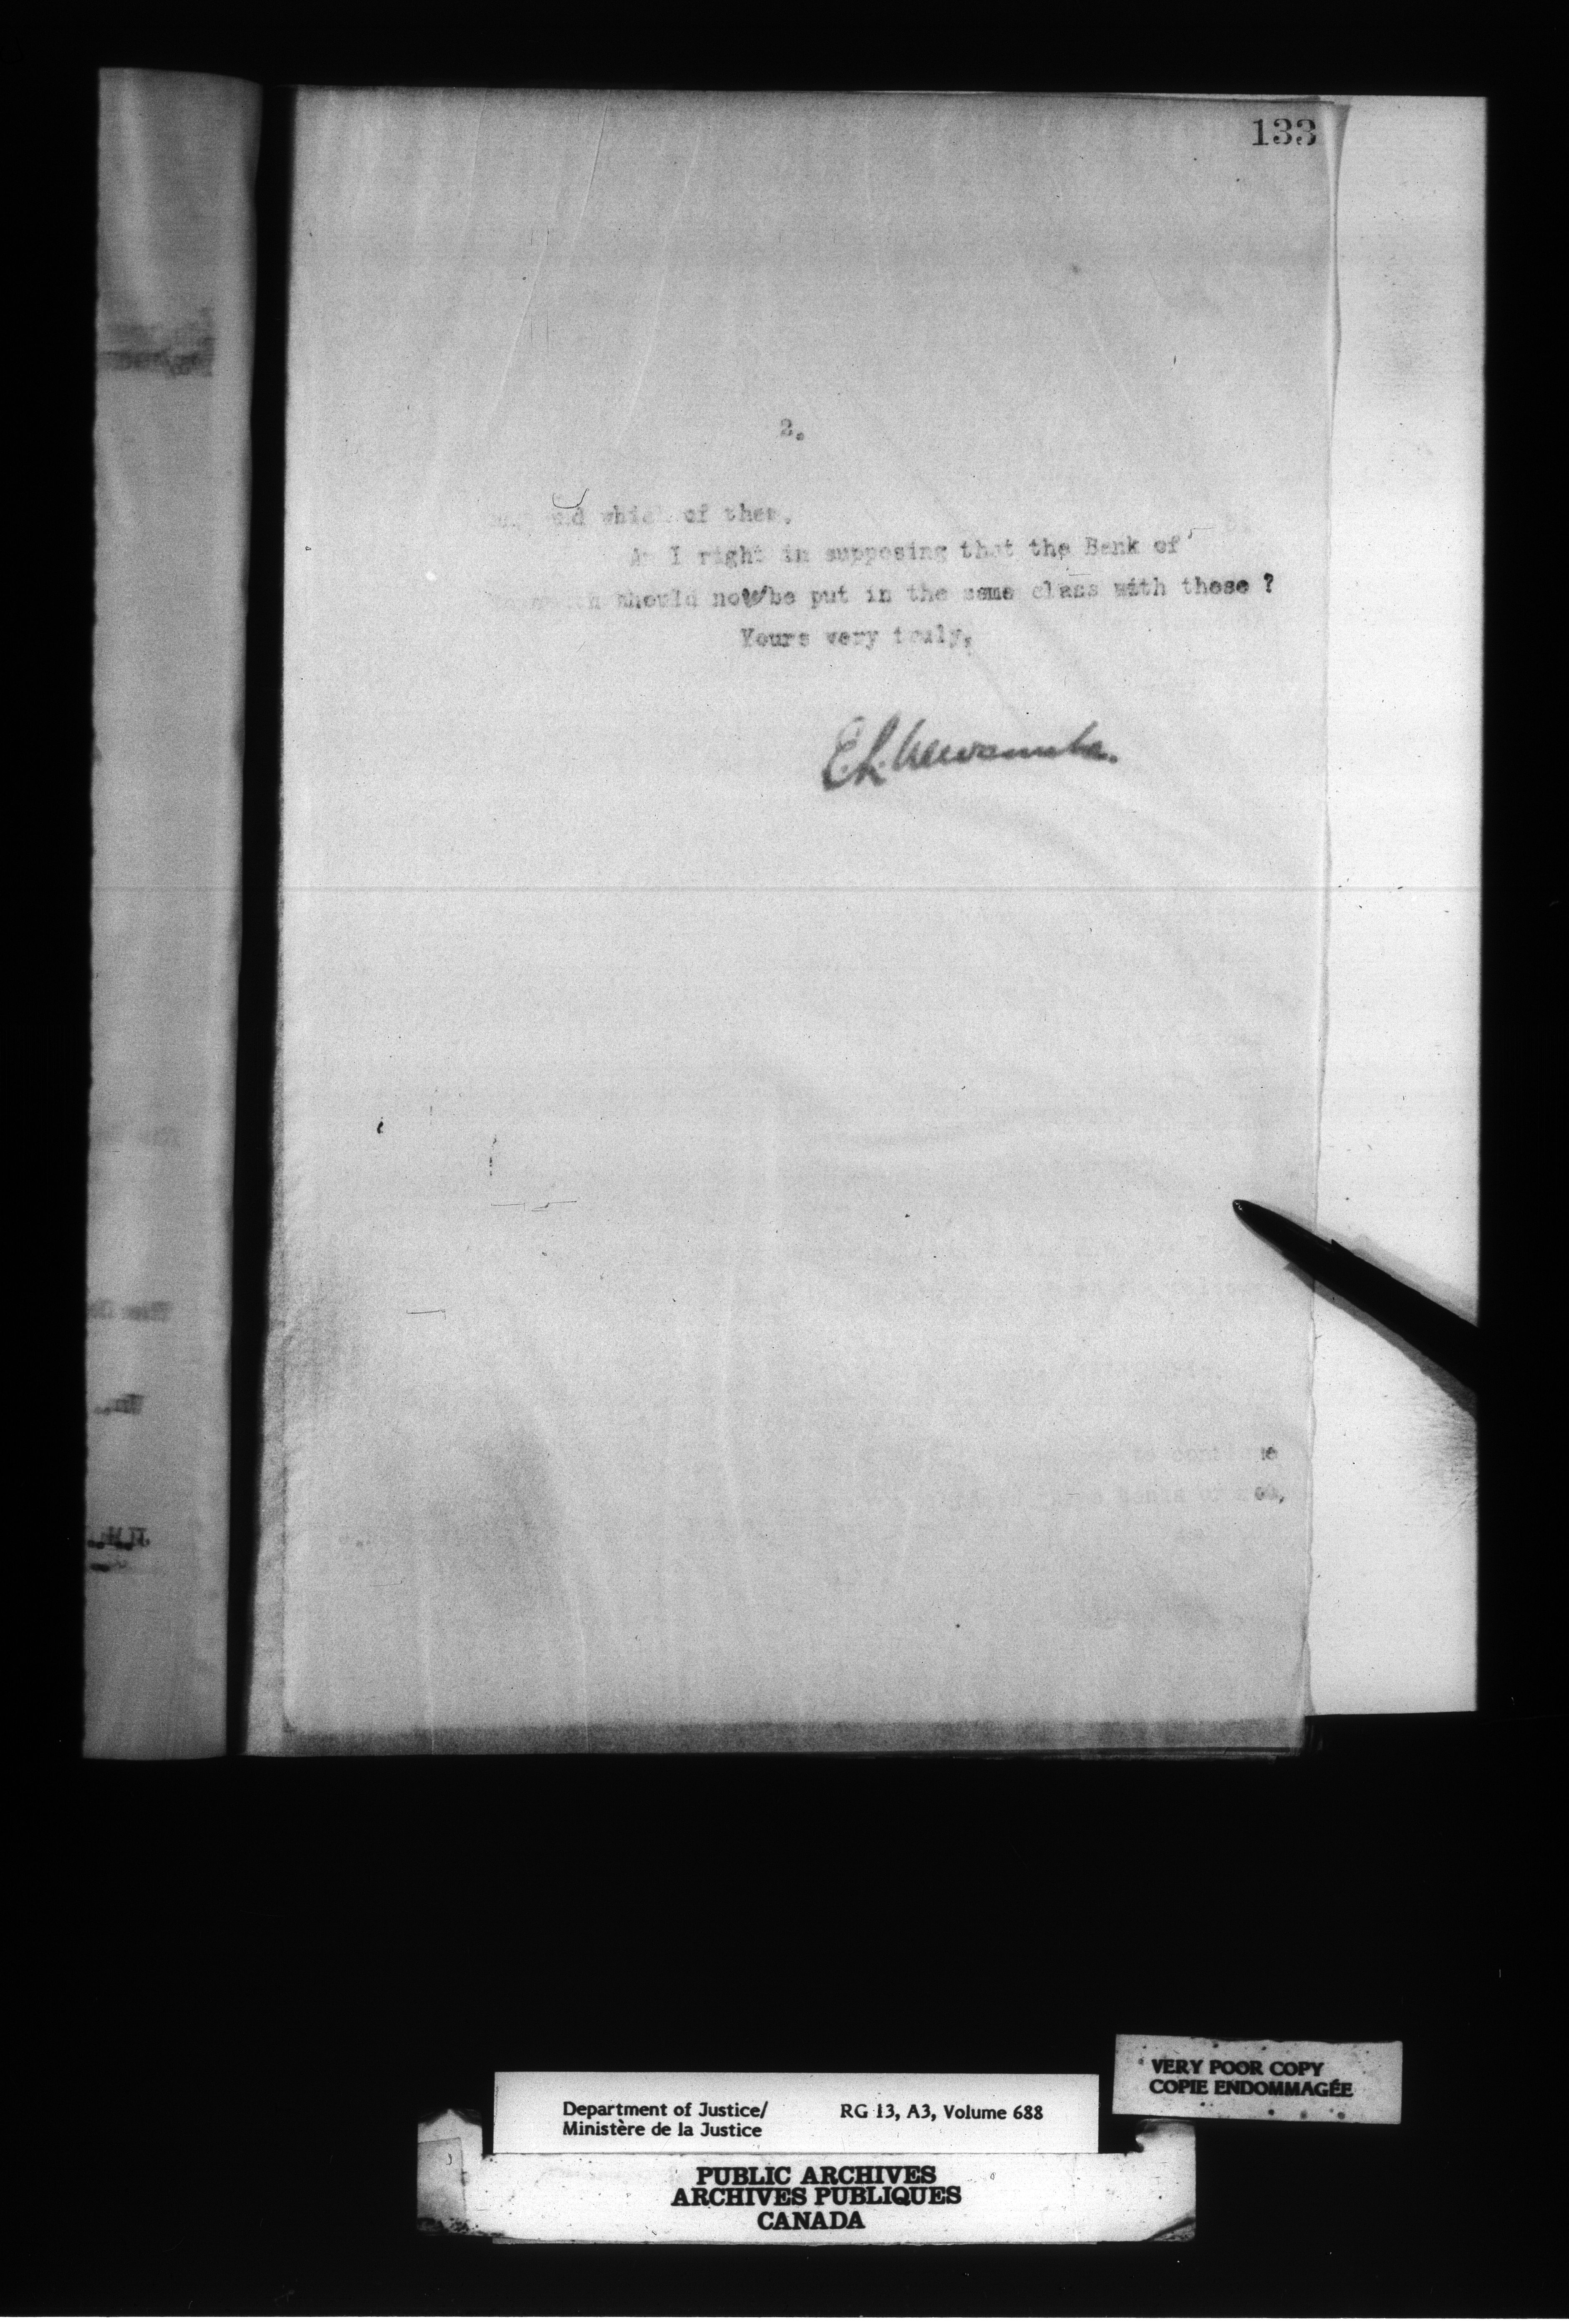 133
2.
and which of them.
Am I right in supposing that the Bank of
should now be put in the same class with these ?
Yours very truly,
E.L. Newcombe.
VERY POOR COPY
COPIE ENDOMMAGÉE
Department of Justice/ RG 13, A3, Volume 688
Ministère de la Justice
PUBLIC ARCHIVES
ARCHIVES PUBLIQUES
CANADA